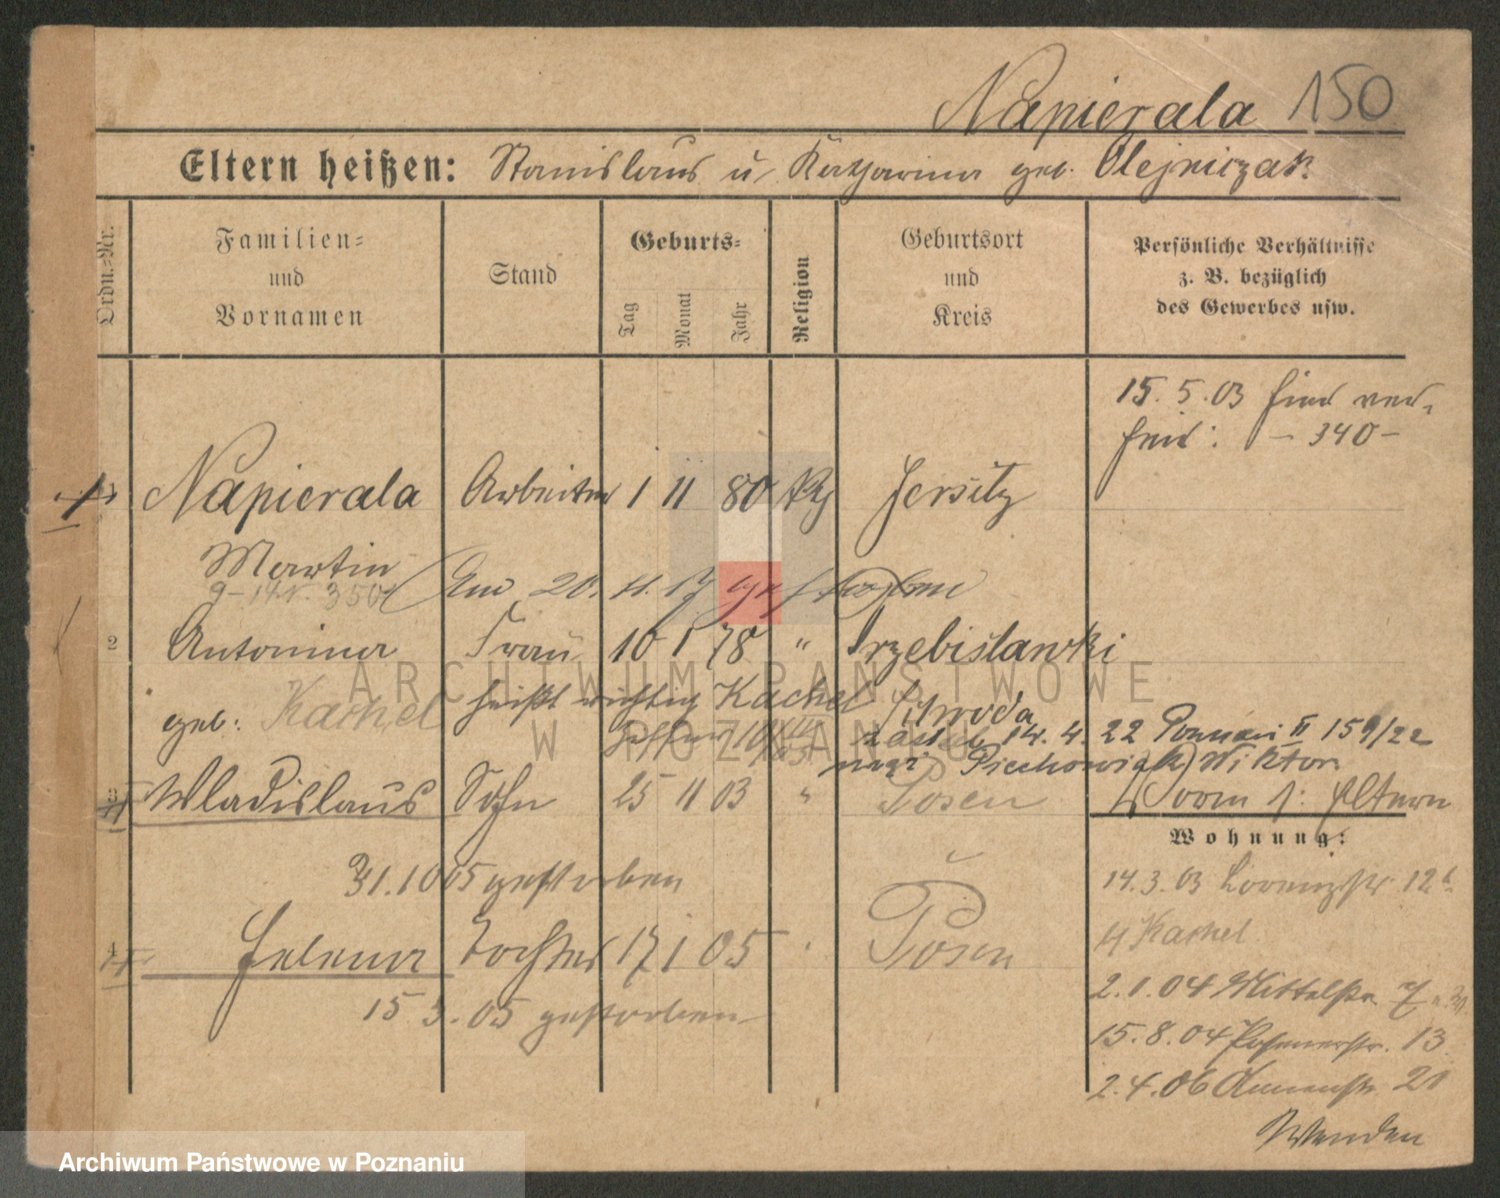 Napierala 150
Eltern heißen: Stanislaus u. Katharina geb. Olejniczak
Ordn.-Nr.
Familien-
und
Vornamen
Stand
Geburts-
Tag
Monat
Jahr
Religion
Geburtsort
und
Kreis
Persönliche Verhältnisse
z. B. bezüglich
des Gewerbes usw.
15. 5. 03 sind ver-
heir: - 340 -
1 Napierala Arbeiter 1 11 80 Jersitz
Martin
Am 20. 4. 17 gestorben
2 Antonina Frau 10 1 78 " Przebislawki
geb. Kachel heißt richtig Kachel Schroda
14. 4. 22 Poznań II 159/22
Piechowiak Wiktor
3 Wladislaus Sohn 25 11 03 " Posen vorn 1: Eltern
31. 10 05 gestorben
4 Helena Tochter 17 1 05 Posen
15 3. 05 gestorben
Wohnung:
14. 3. 03 Lorenzstr 12
b/ Kachel
2. 1. 04 Mittelstr. 7
15. 8. 04 Posenerstr. 13
2. 4. 06 20
Wenden
ARCHIWUM PAŃSTWOWE
W POZNANIU
Archiwum Państwowe w Poznaniu